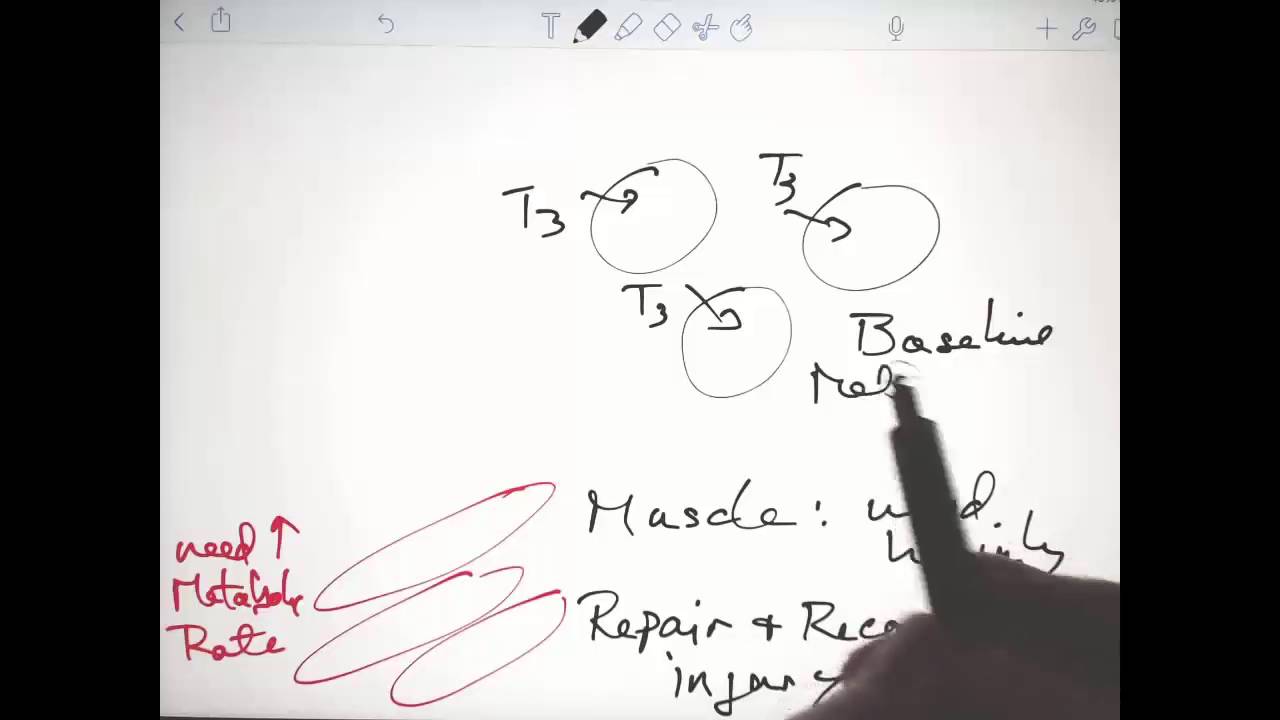 T
T3
T3
T3
Baseline
Muscle:
need ↑
Metabolic
Rate
Repair +
injury